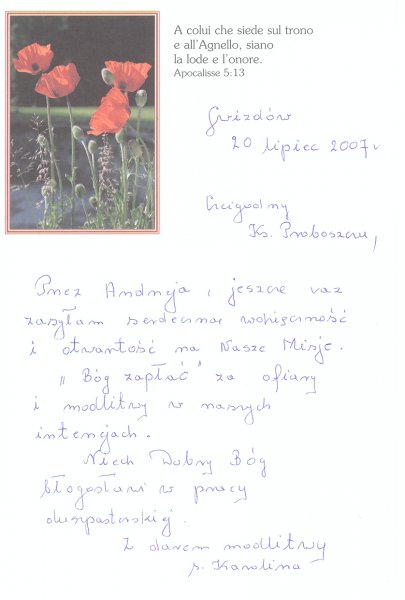 A colui che siede sul trono
e all'Agnello, siano
la lode e l'onore.
Apocalisse 5:13
Gwizdów
20 lipiec 2007r
Czcigodny
Ks. Proboszczu,
Przez Andrzeja, jeszcze raz
zasyłam serdeczną wdzięczność
i otwartość na Nasze Misje.
„Bóg zapłać" za ofiary
i modlitwy w naszych
intencjach.
Niech Dobry Bóg
błogosławi w pracy
duszpasterskiej.
Z darem modlitwy
s. Karolina